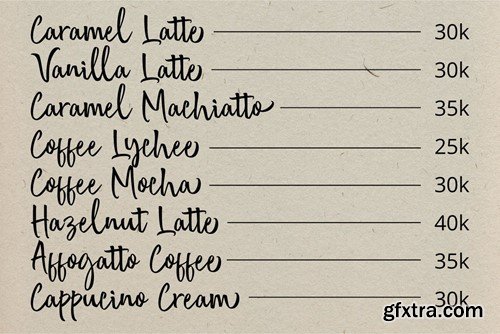 Caramel Latte 30k
Vanilla Latte 30k
Caramel Machiatto 35k
Coffee Lychee 25k
Coffee Mocha 30k
Hazelnut Latte 40k
Affogatto Coffee 35k
Cappucino Cream 30k
gfxtra.com